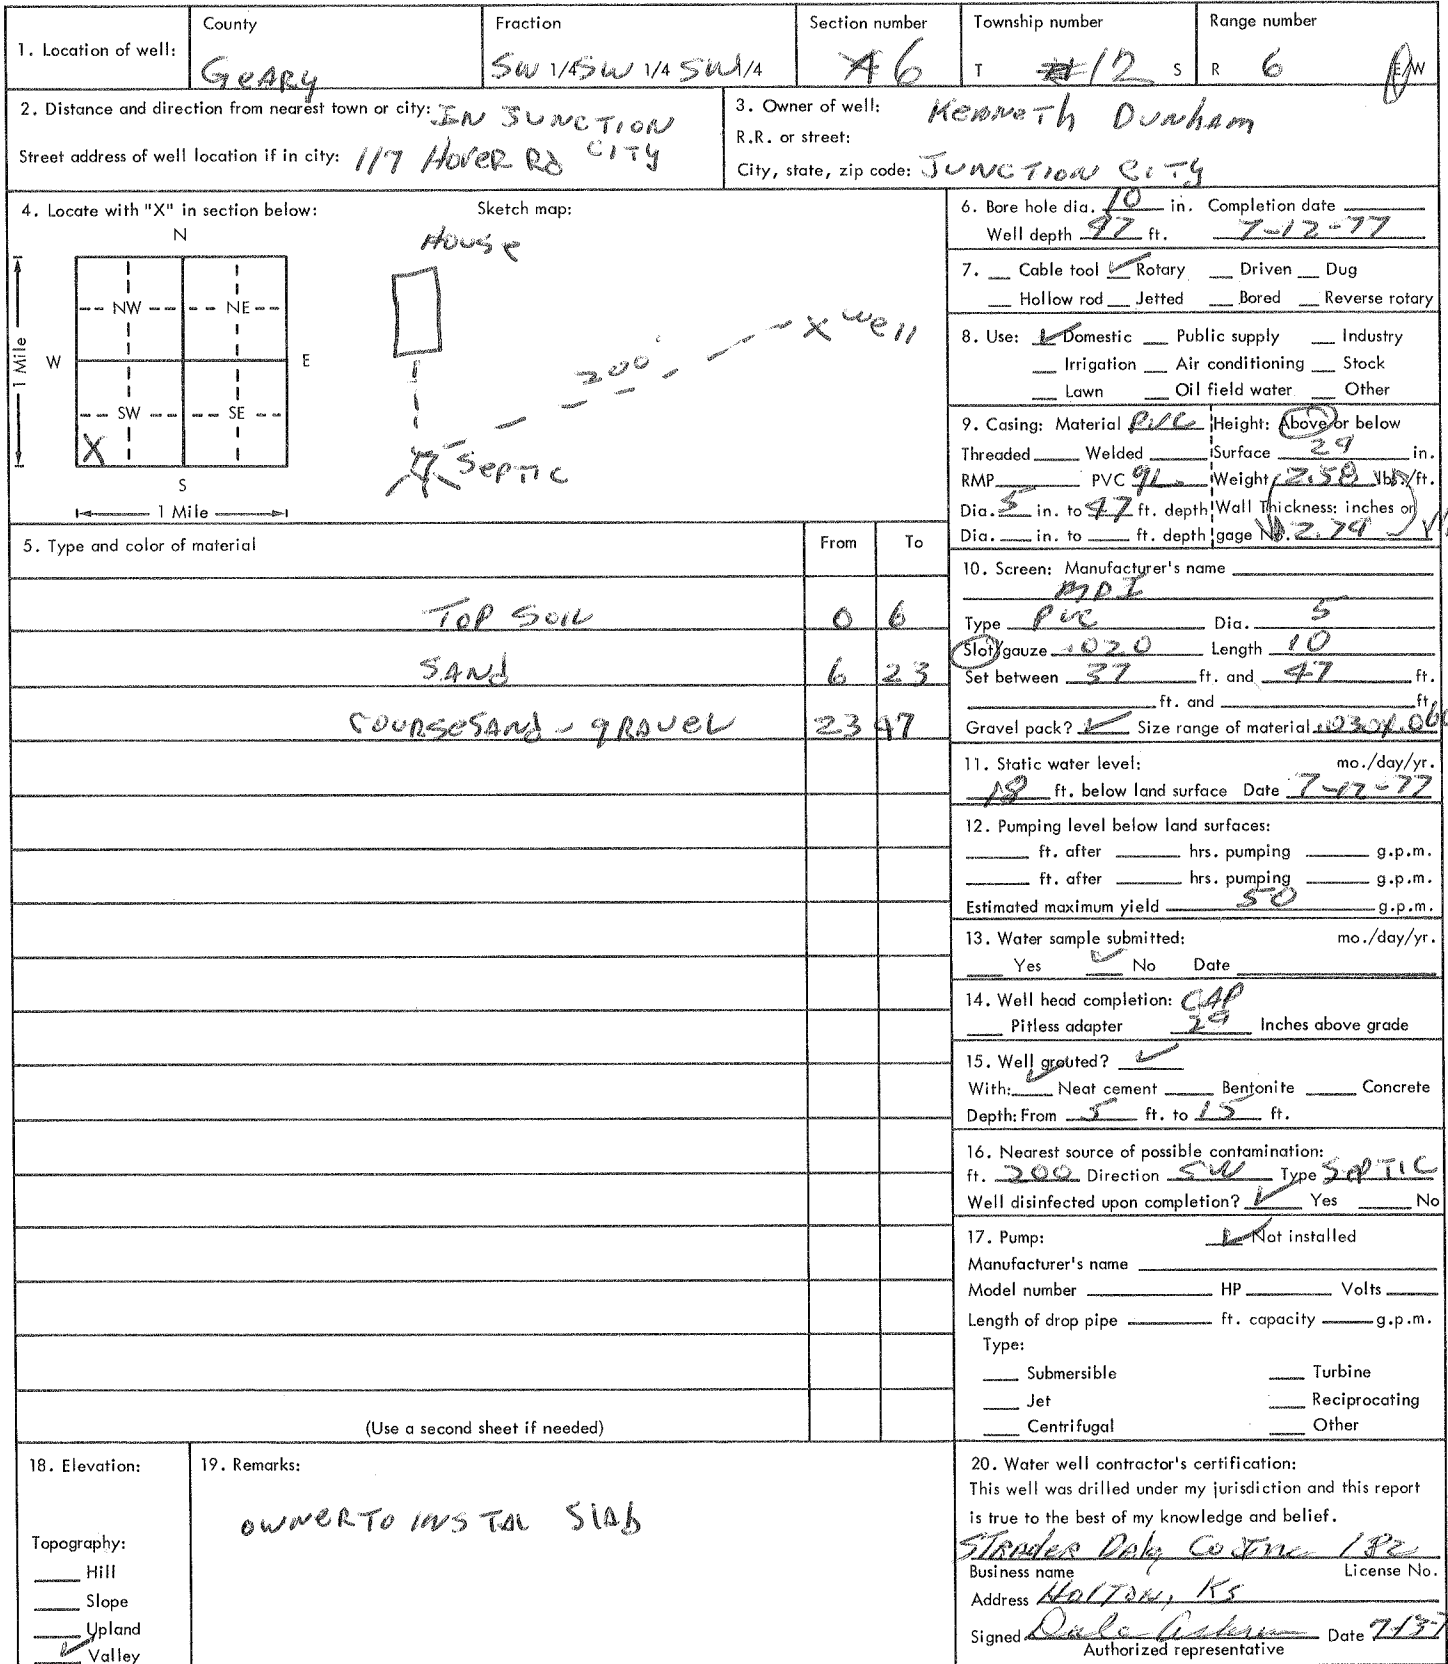 1. Location of well:
County
Geary
Fraction
SW 1/4 SW 1/4 SW 1/4
Section number
6
Township number
T 12 S
Range number
R 6 E/W
2. Distance and direction from nearest town or city: IN JUNCTION CITY
Street address of well location if in city: 117 Hover Rd
3. Owner of well: Kenneth Dunham
R.R. or street:
City, state, zip code: JUNCTION CITY
4. Locate with "X" in section below:
Sketch map:
N
NW NE
W E
SW SE
X
S
1 Mile
1 Mile
House
200'
X well
Septic
5. Type and color of material From To
TOP SOIL 0 6
SAND 6 23
COURSE SAND - GRAVEL 23 47
(Use a second sheet if needed)
6. Bore hole dia. 10 in. Completion date
Well depth 47 ft. 7-12-77
7. Cable tool Rotary Driven Dug
Hollow rod Jetted Bored Reverse rotary
8. Use: Domestic Public supply Industry
Irrigation Air conditioning Stock
Lawn Oil field water Other
9. Casing: Material PVC Height: Above or below
Threaded Welded Surface 24 in.
RMP PVC Weight 2.58 lbs./ft.
Dia. 5 in. to 47 ft. depth Wall Thickness: inches or
Dia. in. to ft. depth gage No. 2.79
10. Screen: Manufacturer's name
MDI
Type PVC Dia. 5
Slot/gauze .020 Length 10
Set between 37 ft. and 47 ft.
ft. and ft.
Gravel pack? Size range of material
11. Static water level: mo./day/yr.
18 ft. below land surface Date 7-12-77
12. Pumping level below land surfaces:
ft. after hrs. pumping g.p.m.
ft. after hrs. pumping g.p.m.
Estimated maximum yield 50 g.p.m.
13. Water sample submitted: mo./day/yr.
Yes No Date
14. Well head completion: CAP
Pitless adapter 24 Inches above grade
15. Well grouted?
With: Neat cement Bentonite Concrete
Depth: From 5 ft. to 15 ft.
16. Nearest source of possible contamination:
ft. 200 Direction SW Type SEPTIC
Well disinfected upon completion? Yes No
17. Pump: Not installed
Manufacturer's name
Model number HP Volts
Length of drop pipe ft. capacity g.p.m.
Type:
Submersible Turbine
Jet Reciprocating
Centrifugal Other
18. Elevation:
Topography:
Hill
Slope
Upland
Valley
19. Remarks:
OWNER TO INSTAL SLAB
20. Water well contractor's certification:
This well was drilled under my jurisdiction and this report
is true to the best of my knowledge and belief.
Strader Drlg Co Inc 182
Business name License No.
Address Holton, Ks
Signed Dale Date
Authorized representative